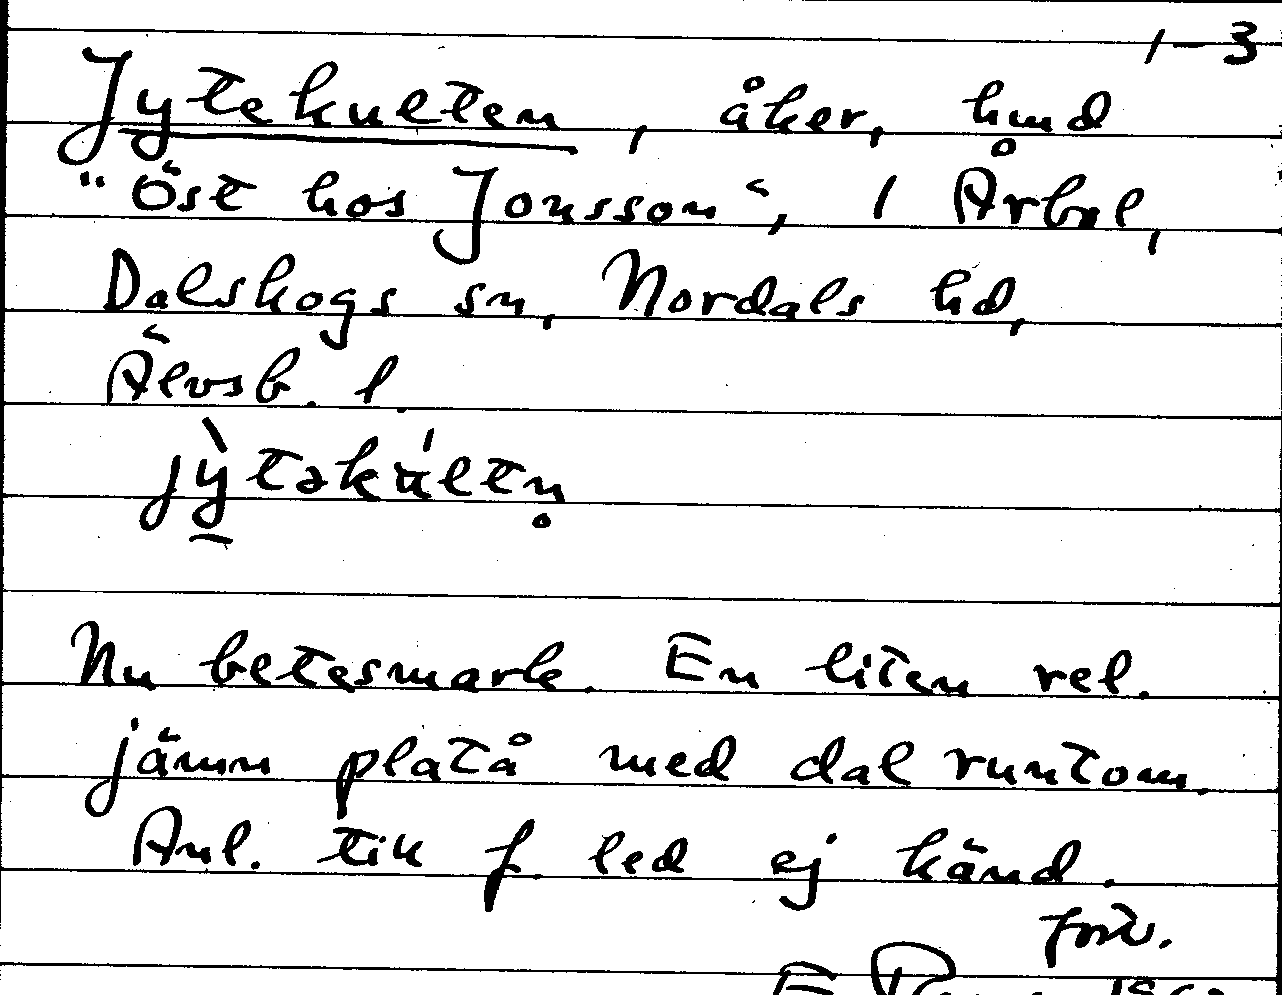 1-3
Jytekulten, åker, hmd
"Öst hos Jonsson", 1 Årbol,
Dalskogs sn, Nordals hd,
Älvsb. l.
jỳtəkúltn̥
Nu betesmark. En liten rel.
jämn platå med dal runtom.
Anl. till f. led ej känd.
forts.
E